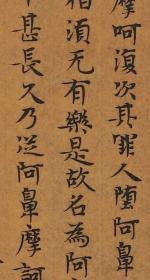 摩呵復次其罪人墮阿鼻
須无有樂是故名為阿
甚長久乃送阿鼻摩訶